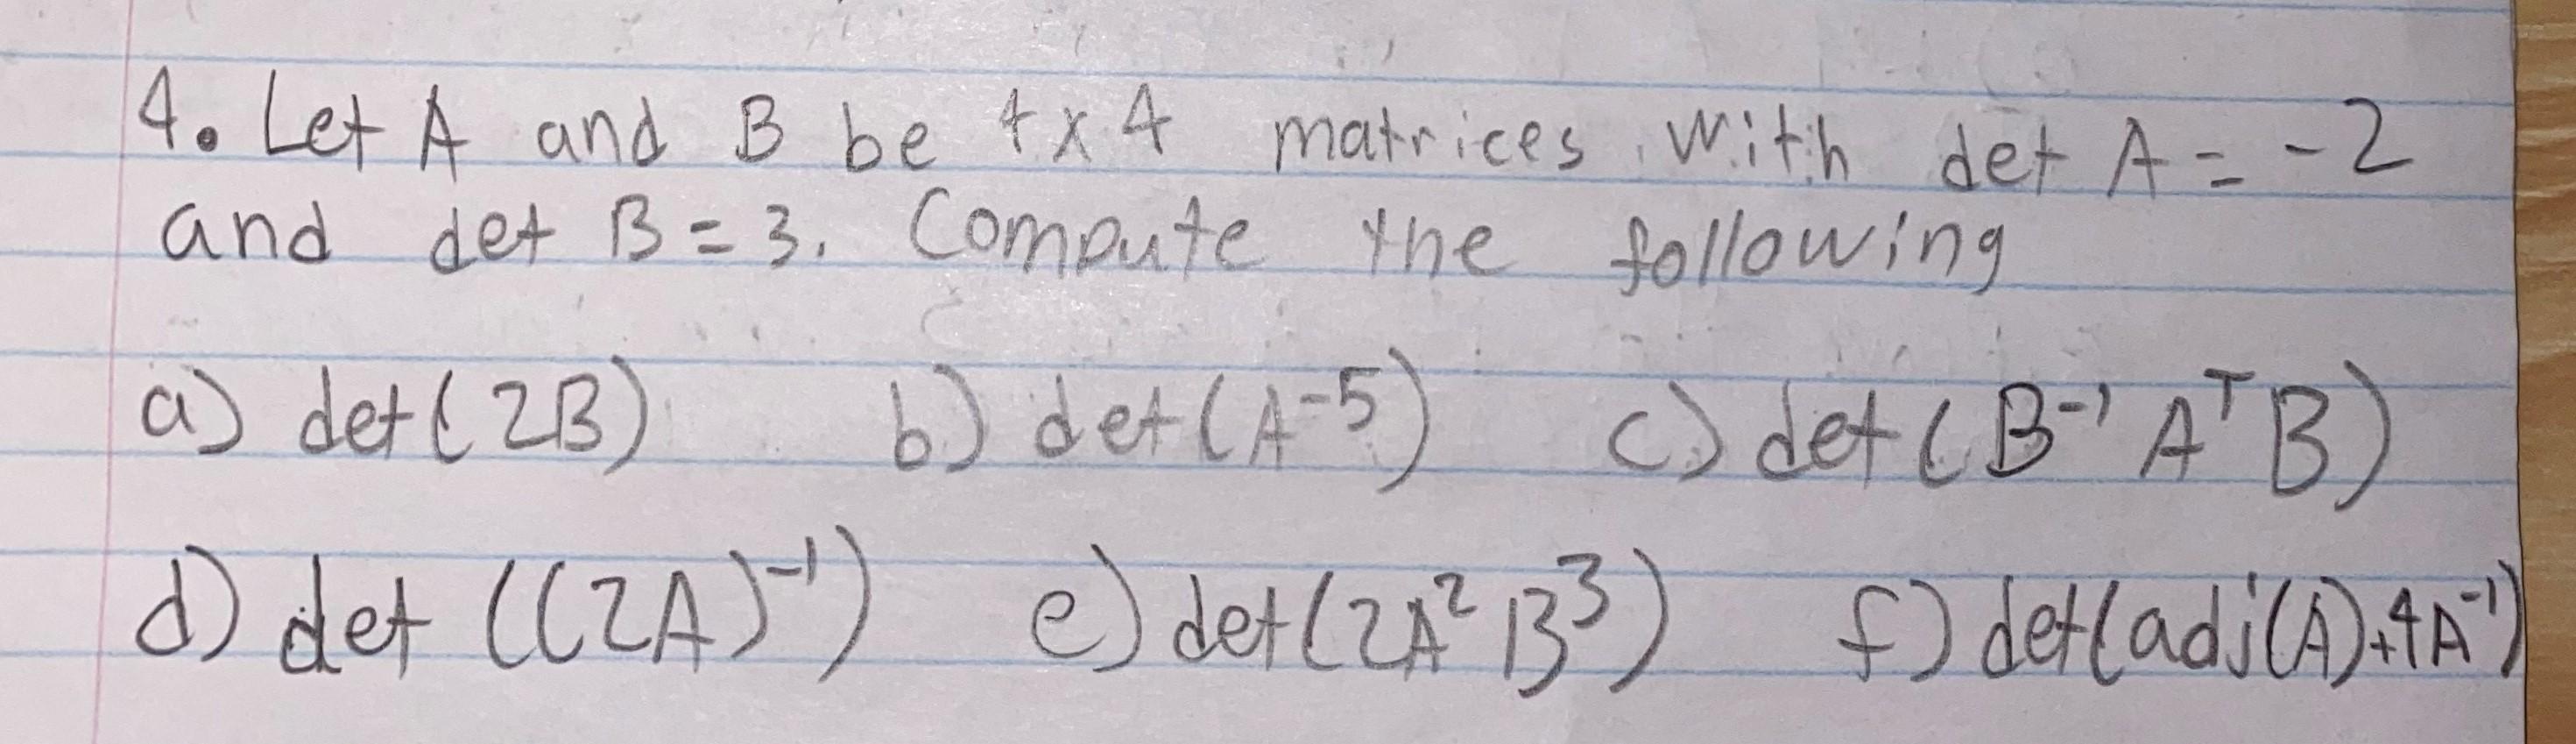 4. Let A and B be 4x4 matrices with det A = -2
and det B = 3. Compute the following
a) det(2B) b) det(A⁻⁵) c) det(B⁻¹AᵀB)
d) det((2A)⁻¹) e) det(2A²B³) f) det(adj(A)+4A⁻¹)